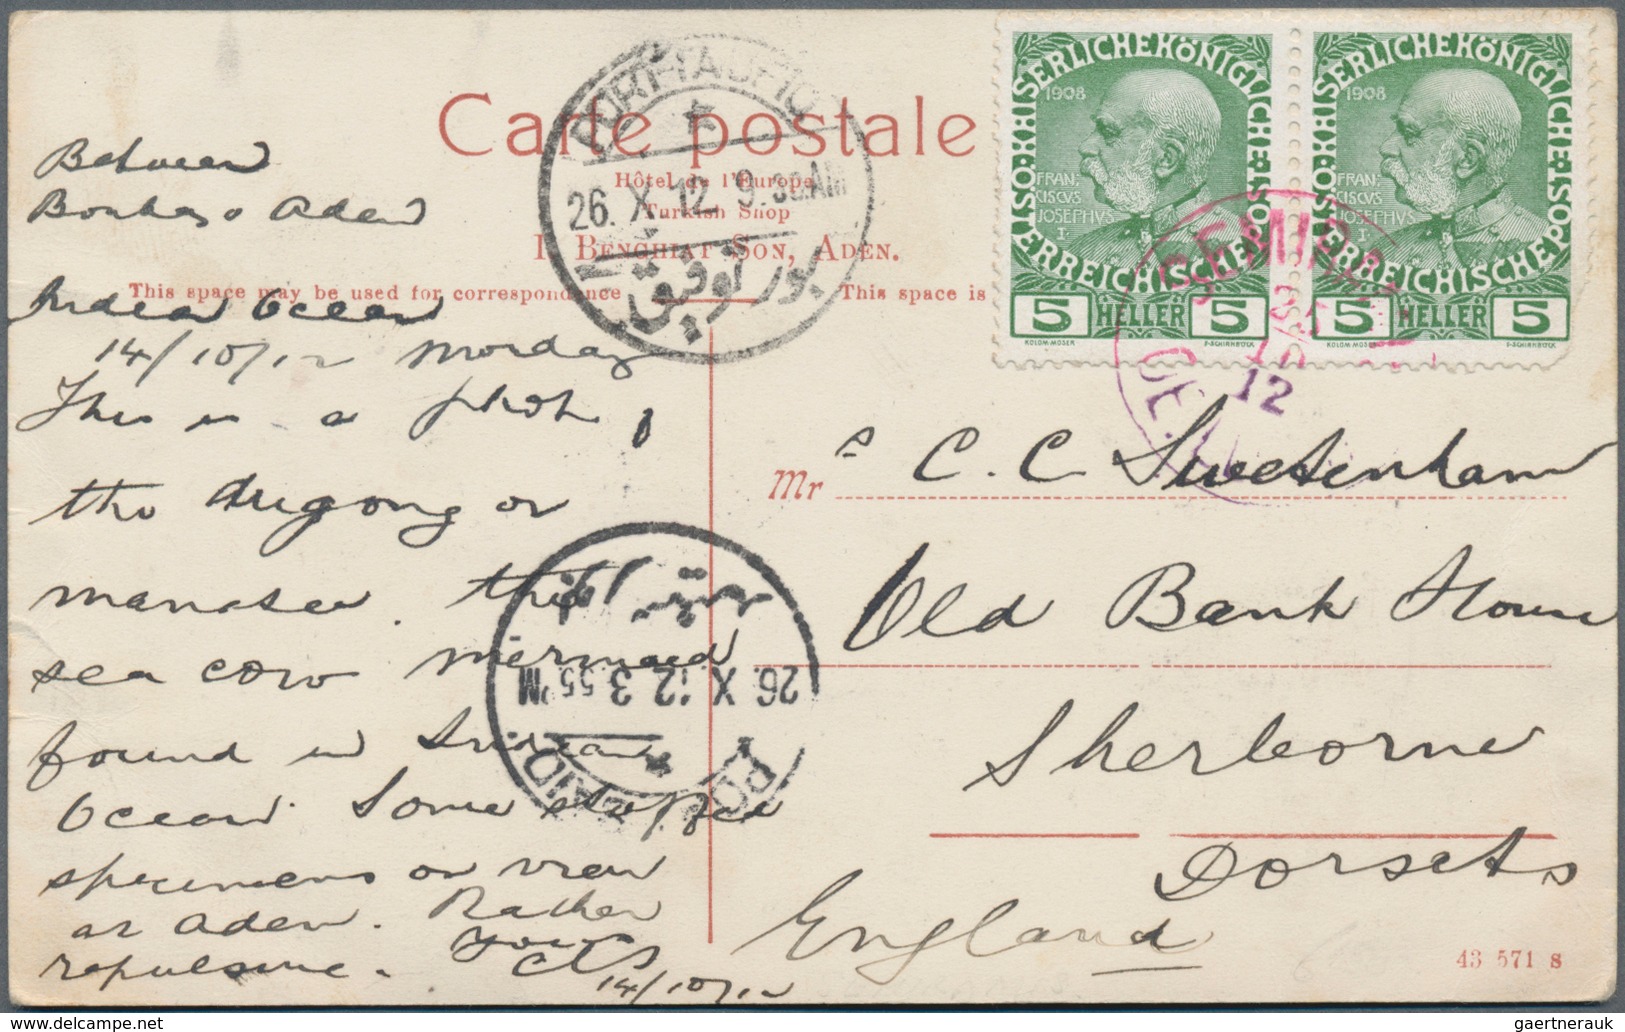 Carte postale
Hôtel de l'Europe
Turkish Shop
I. BENGHIAT SON, ADEN.
This space may be used for correspondence
This space is
Between
Bombay & Aden
Indian Ocean
14/10/12 Monday
This is a photo
the dugong or
manatee. this
sea cow mermaid
found in Indian
Ocean. Some stuffed
specimens on view
at Aden. Rather
repulsive.
Yours
14/10/12
Mr C. C. Swetenham
Old Bank House
Sherborne
Dorsets
England
43 571 s
PORT-TAUFIQ
26. X. 12. 9.30AM
بور توفيق
26. X. 12. 3.55 PM
KAISERLICHE KÖNIGLICHE ÖSTERREICHISCHE POST
1908
FRAN-
CISCVS
IOSEPHVS
I.
5 HELLER 5
KOLOM. MOSER
F. SCHIRNBÖCK
KAISERLICHE KÖNIGLICHE ÖSTERREICHISCHE POST
1908
FRAN-
CISCVS
IOSEPHVS
I.
5 HELLER 5
KOLOM. MOSER
F. SCHIRNBÖCK
SEMIRA
12
gaertnerauk@delcampe.net